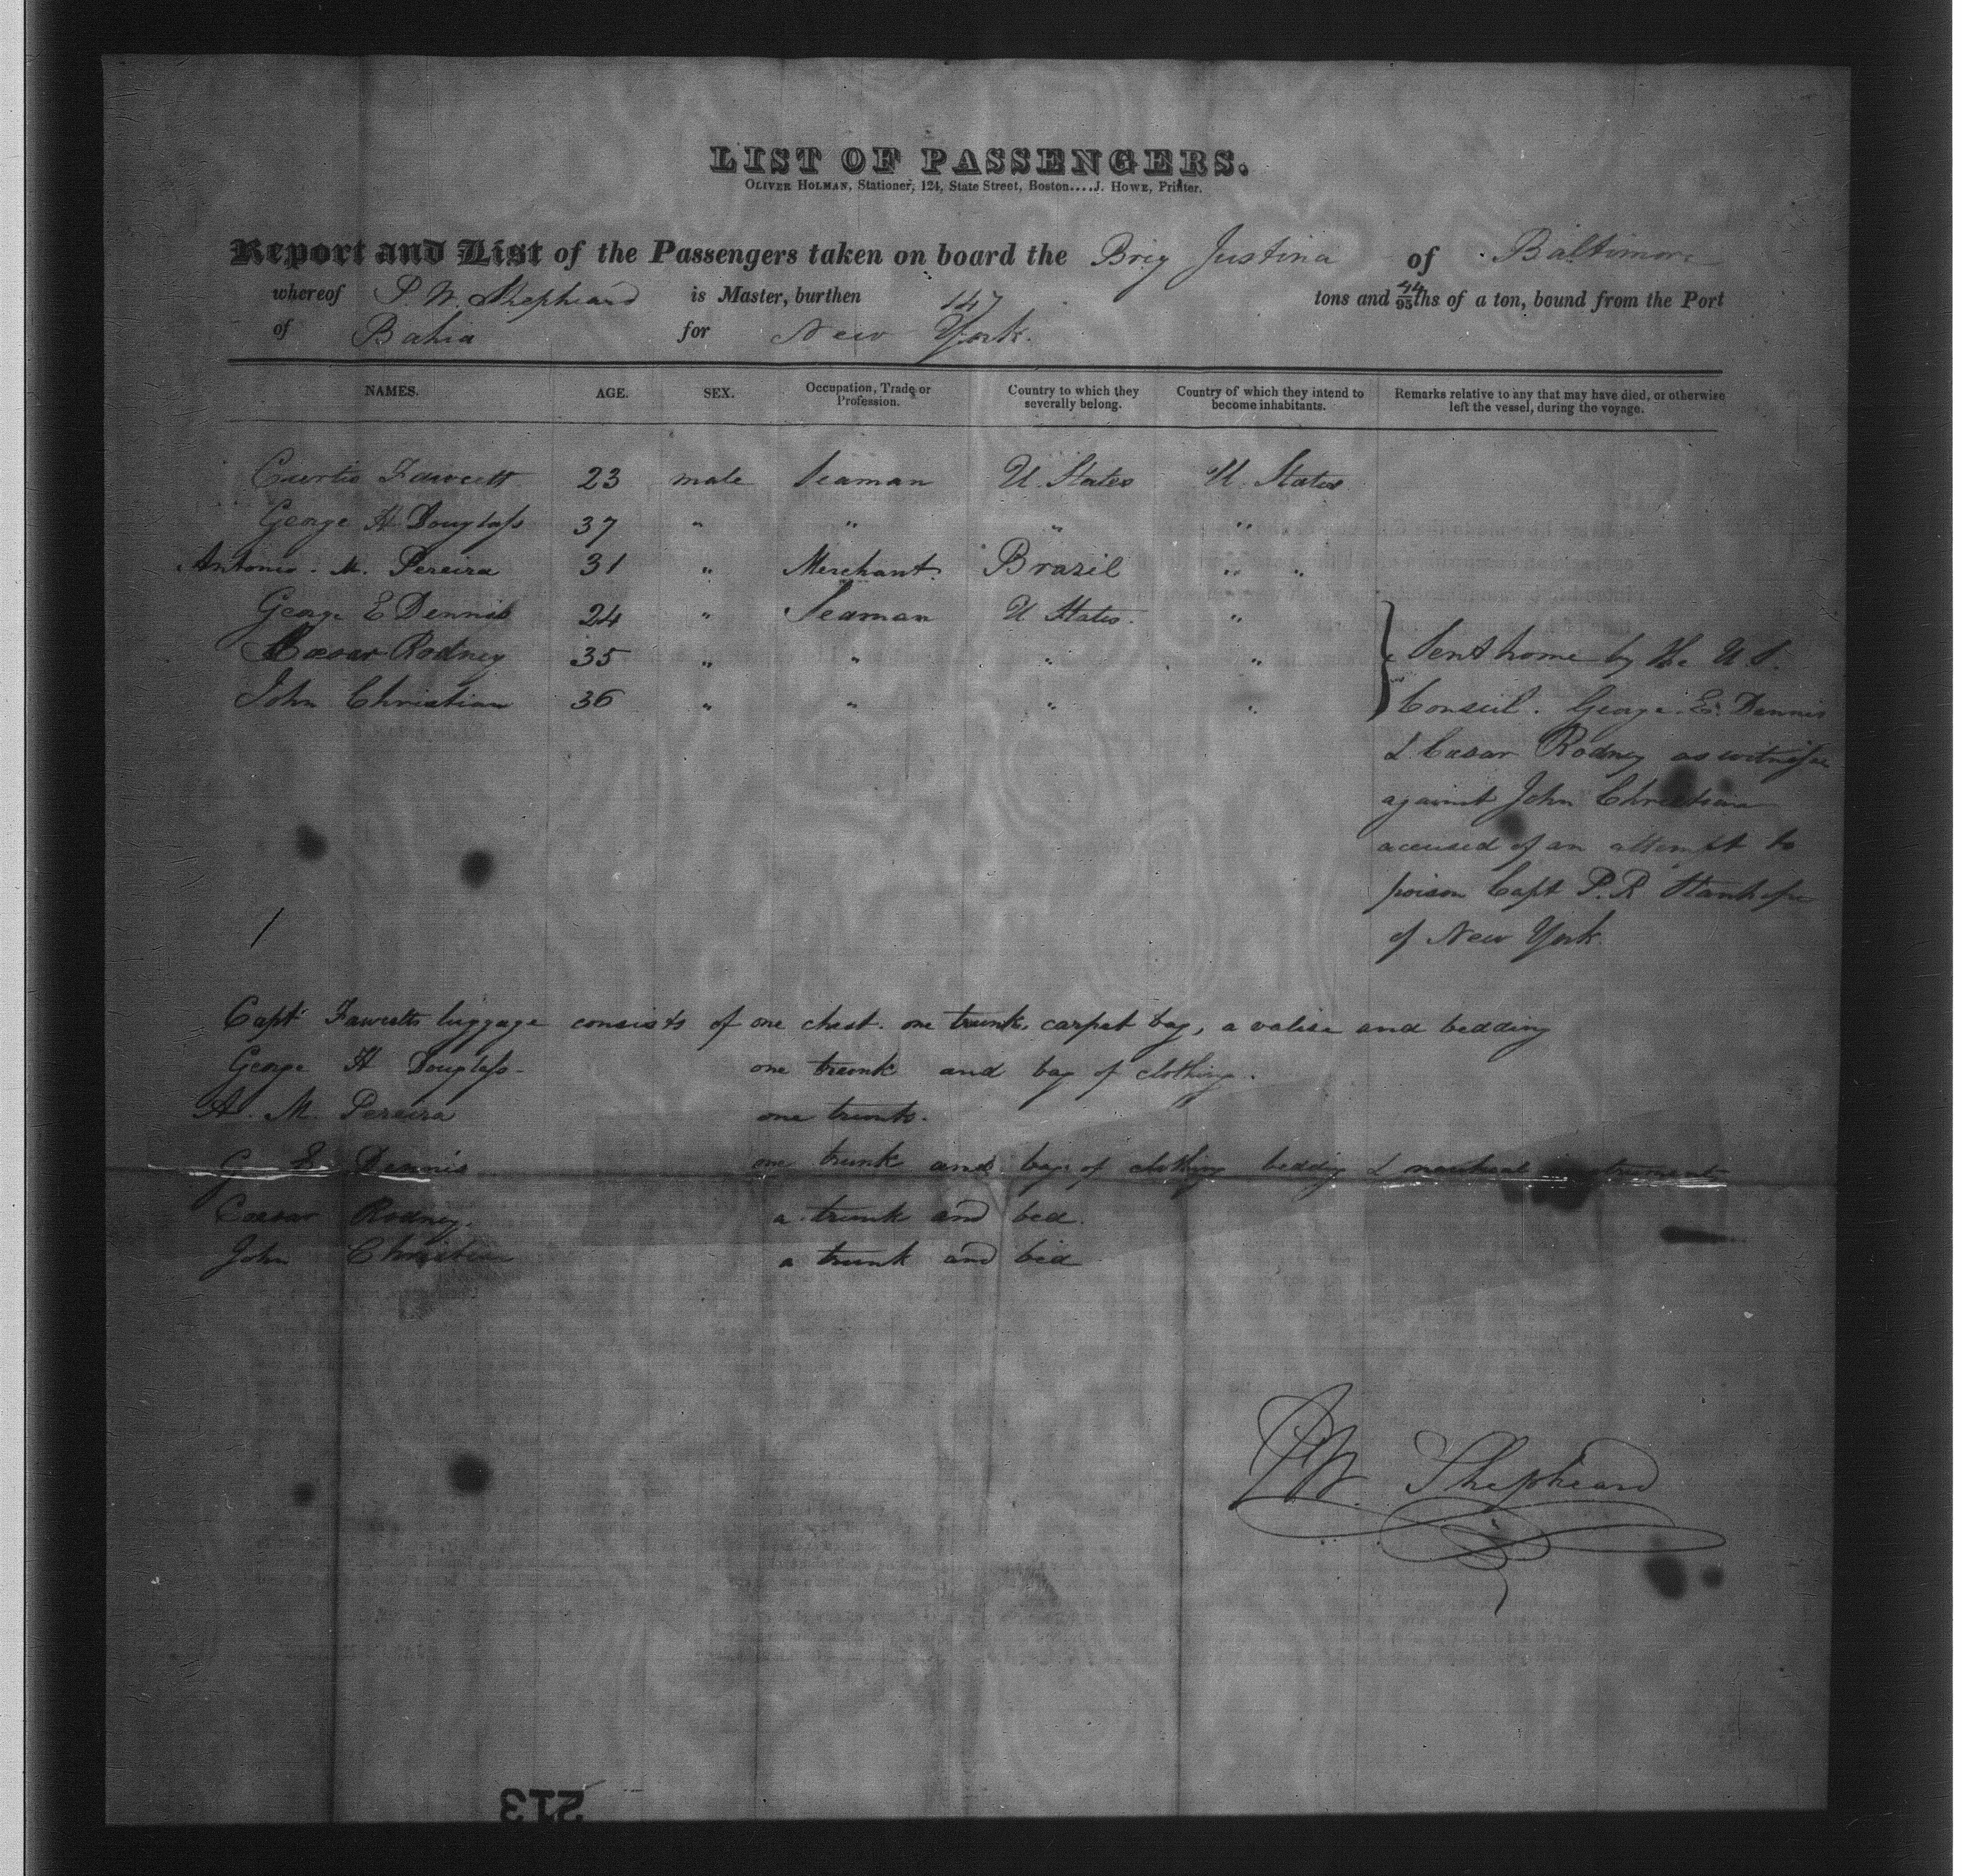 LIST OF PASSENGERS.
OLIVER HOLMAN, Stationer, 124, State Street, Boston....J. HOWE, Printer.
Report and List of the Passengers taken on board the Brig Justina of Baltimore
whereof P. W. Shepheard is Master, burthen 147 tons and 44/95ths of a ton, bound from the Port
of Bahia for New York.
NAMES. AGE. SEX. Occupation, Trade or Profession. Country to which they severally belong. Country of which they intend to become inhabitants. Remarks relative to any that may have died, or otherwise left the vessel, during the voyage.
Curtis Fawcett 23 male Seaman U. States U. States
George H Douglass 37 " " " "
Antonio. M. Pereira 31 " Merchant. Brazil " "
George E Dennis 24 " Seaman U States. "
Caesar Rodney 35 " " " " } Sent home by the U S.
John Christian 36 " " " " Consul. George. E. Dennis
& Caesar Rodney as witnesses
against John Christian
accused of an attempt to
poison Capt P. R Stanhope
of New York
Capt Fawcetts luggage consists of one chest. one trunk. carpet bag, a valise and bedding
George H Douglass - one trunk and bag of clothing.
A. M. Pereira one trunk.
G E Dennis one trunk and bag of clothing bedding & nautical instruments
Caesar Rodney. a trunk and bed.
John Christian a trunk and bed
P W. Shepheard
213